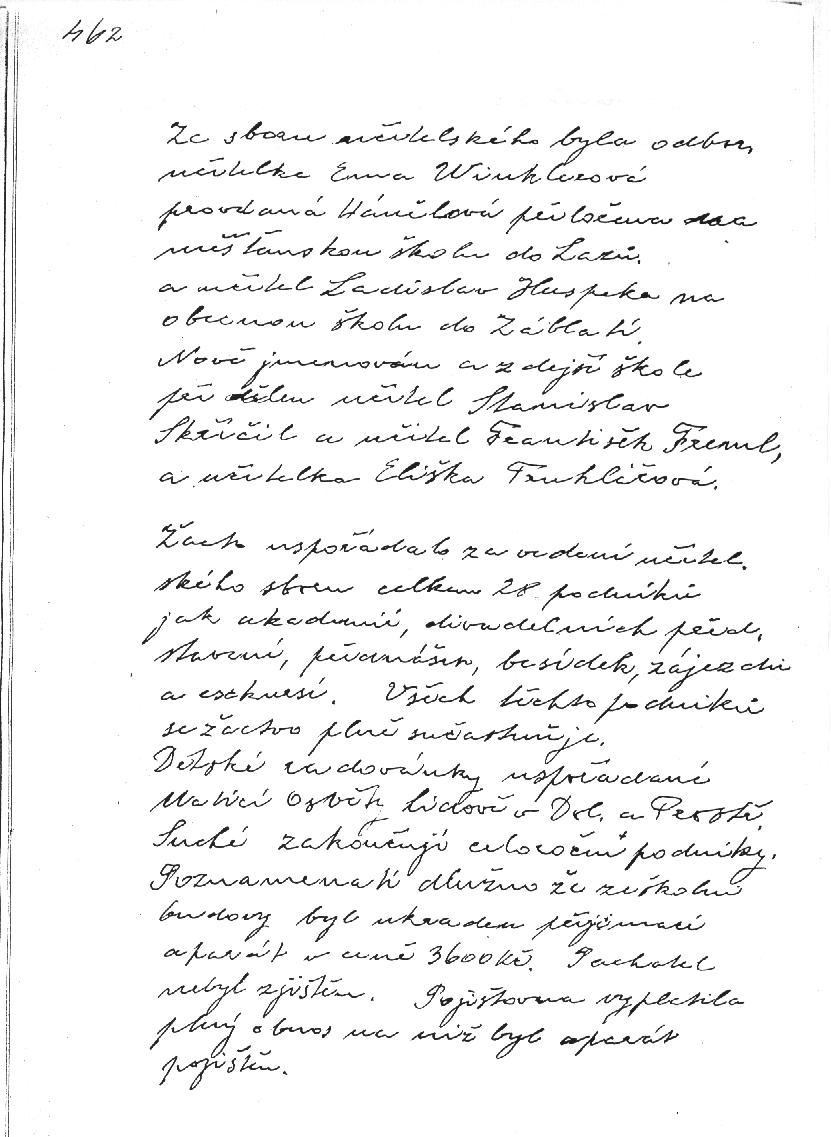 462
Ze sboru učitelského byla odbor.
učitelka Ema Winklerová
provdaná Hánělová přeložena na
měšťanskou školu do Lazů.
a učitel Ladislav Huspeka na
obecnou školu do Záblatí.
Nově jmenován a zdejší škole
přidělen učitel Stanislav
Skříčil a učitel František Freml,
a učitelka Eliška Truhličová.
Žactv uspořádalo za vedení učitel.
ského sboru celkem 28 podniků
jak akademií, divadelních před.
stavení, přednášek, besídek, zájezdů
a exkursí. Všech těchto podniků
se žactvo plně súčastňuje.
Dětské radovánky uspořádané
Maticí Osvěty Lidové v Dol. a Prostř.
Suché zakončují celoroční podniky.
Poznamenati dlužno že ze školní
budovy byl ukraden přijímací
aparát v ceně 3600 Kč. Pachatel
nebyl zjištěn. Pojišťovna vyplatila
plný obnos na niž byl aparát
pojištěn.